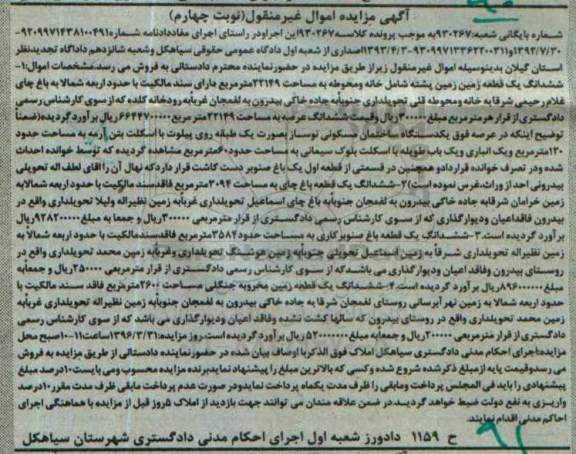 آگهی مزایده اموال غیرمنقول(نوبت چهارم)
شماره بایگانی شعبه:۹۳۰۲۶۷به موجب پرونده کلاسه۹۳۰۲۶۷این اجرا ودر راستای اجرای مفاددادنامه شماره۹۲۰۹۹۷۱۴۳۸۱۰۰۴۹۱-
۱۳۹۲/۷/۳۰و۹۳۰۹۹۷۱۳۳۶۲۲۰۰۳۱۱-۱۳۹۳/۴/۳صادری از شعبه اول دادگاه عمومی حقوقی سیاهکل وشعبه شانزدهم دادگاه تجدیدنظر
استان گیلان بدینوسیله اموال غیرمنقول زیراز طریق مزایده در حضورنماینده محترم دادستانی به فروش می رسد.مشخصات اموال:۱-
ششدانگ یک قطعه زمین پشته شامل خانه ومحوطه به مساحت ۲۲۱۴۹مترمربع دارای سند مالکیت با حدود اربعه شمالا به باغ چای
غلام رحیمی شرقا به خانه ومحوطه قلی تحویلداری جنوبابه جاده خاکی بیدرون به لفمجان غربابه رودخانه کلده که از سوی کارشناس رسمی
دادگستری از قرار هر متر مربع مبلغ ۳۰۰۰۰ریال وقیمت ششدانگ عرصه به مساحت ۲۲۱۴۹متر مربع ۶۶۴۴۷۰۰۰۰ریال بر آورد گردیده(ضمنا
توضیح اینکه در عرصه فوق یکدستگاه ساختمان مسکونی نوساز بصورت یک طبقه روی پیلوت با اسکلت بتن آرمه به مساحت حدود
۱۲۰مترمربع ویک انباری ویک باب طویله با اسکلت بلوک سیمانی به مساحت حدود۶۰مترمربع مشاهده گردیده که توسط خوانده احداث
شده ودر تصرف خوانده قراردادو همچنین در قسمتی از قطعه اول یک باغ صنوبر دست کاشت قرار داردکه نهال آن را آقای لطف اله تحویلی
بیدرونی احد از وراث،غرس نموده است)۲-ششدانگ یک قطعه باغ چای به مساحت ۳۰۹۴مترمربع فاقدسند مالکیت با حدود اربعه شمالابه
زمین خرامان شرقابه جاده خاکی بیدرون به لفمجان جنوبابه باغ چای اسماعیل تحویلداری غربابه زمین نظیراله ولیلا تحویلداری واقع در
بیدرون فاقداعیان ودیوارگذاری که از سوی کارشناس رسمی دادگستری از قرار مترمربعی ۳۰۰۰۰ریال و جمعا به مبلغ ۹۲۸۲۰۰۰۰ریال
بر آورد گردیده است.۳-ششدانگ یک قطعه باغ صنوبرکاری به مساحت حدود۳۵۸۴مترمربع فاقدسندمالکیت با حدود اربعه شمالا به
زمین نظیراله تحویلداری شرقا به زمین اسماعیل تحویلی جنوبابه زمین هوشنگ تحویلداری وغربابه زمین محمد تحویلداری واقع در
روستای بیدرون وفاقد اعیان ودیوارگذاری می باشدکه از سوی کارشناس رسمی دادگستری از قرار مترمربعی ۲۵۰۰۰ریال و جمعابه
مبلغ ۸۹۶۰۰۰۰۰ریال بر آورد گردیده است.۴-ششدانگ یک قطعه زمین مخروبه جنگلی مساحت ۲۶۰۰مترمربع فاقد سند مالکیت با
حدود اربعه شمالا به زمین نهر آبرسانی روستای لفمجان شرقا به جاده خاکی بیدرون به لفمجان جنوبابه زمین نظیراله تحویلداری غربابه
زمین محمد تحویلداری واقع در روستای بیدرون که سالها کشت نشده وفاقد اعیان ودیوارگذاری می باشد که از سوی کارشناس رسمی
دادگستری از قرار مترمربعی ۲۰۰۰۰ریال و جمعابه مبلغ ۵۲۰۰۰۰۰۰ریال بر آورد گردیده است.روز مزایده:۱۳۹۶/۳/۳۱ساعت۱۱-۱۰صبح محل
مزایده:اجرای احکام مدنی دادگستری سیاهکل املاک فوق الذکربا اوصاف بیان شده در حضورنماینده دادستانی از طریق مزایده به فروش
می رسدوقیمت پایه از مبلغ ذکرشده شروع شده وکسی که بالاترین مبلغ را پیشنهاد نمایدبرنده مزایده محسوب ومی بایست۱۰درصد مبلغ
پیشنهادی را باید فی المجلس پرداخت ومابقی را ظرف مدت یکماه پرداخت نمایدودر صورت عدم پرداخت مابقی ظرف مدت مقرر۱۰درصد
واریزی به نفع دولت ضبط خواهد گردید.در ضمن علاقه مندان می توانند جهت بازدید از املاک ۵روز قبل از مزایده با هماهنگی اجرای
احکام مدنی اقدام نمایند.
ح ۱۱۵۹ دادورز شعبه اول اجرای احکام مدنی دادگستری شهرستان سیاهکل